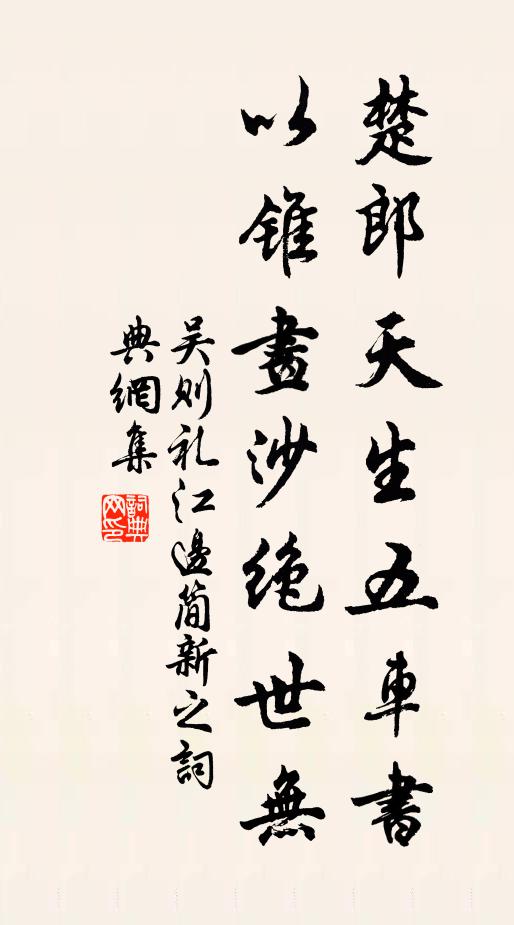 楚郎天生五車書
以錐畫沙絶世無
吴则礼江邊简新之詞
典網集
詞典網印